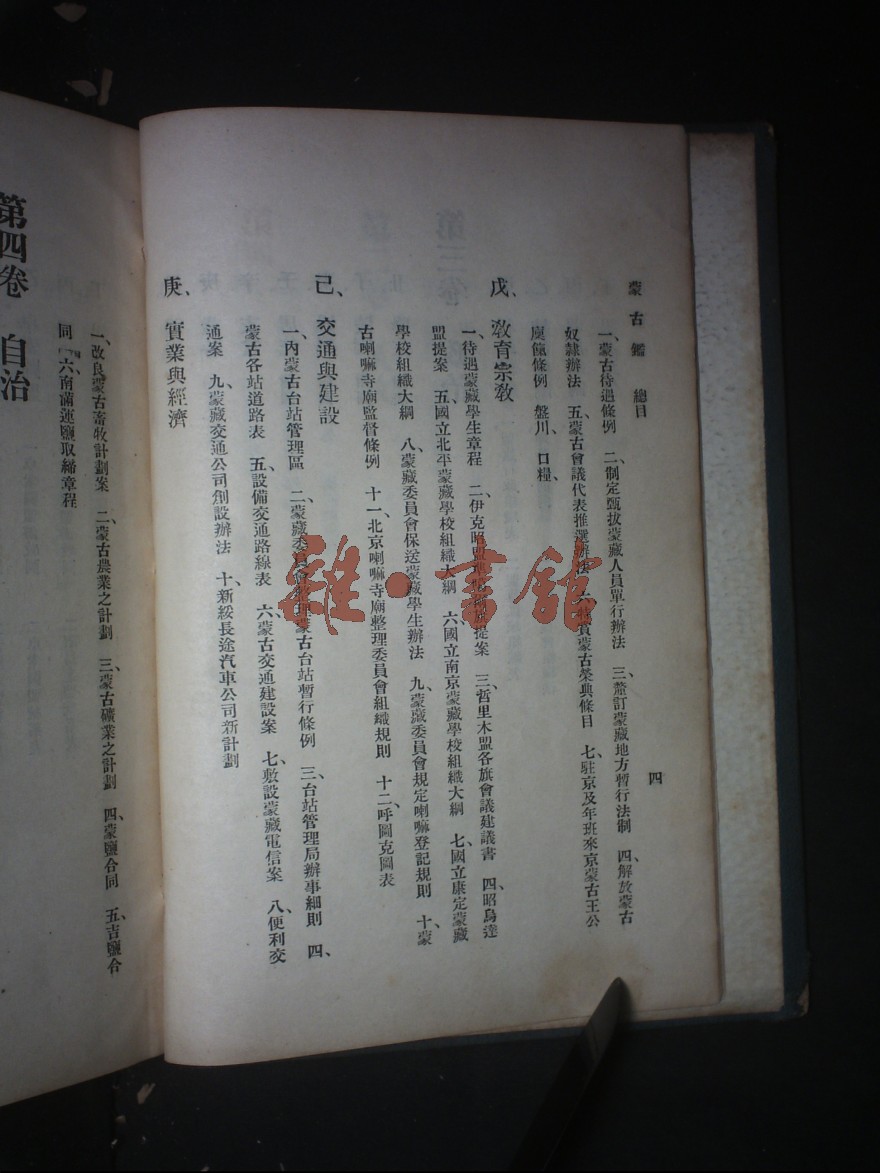 蒙古鑑 總目 四
一、蒙古待遇條例 二、制定甄拔蒙藏人員單行辦法 三、釐訂蒙藏地方暫行法制 四、解放蒙古
奴隸辦法 五、蒙古會議代表推選辦法 六、蒙古榮典條目 七、駐京及年班來京蒙古王公
廩餼條例 盤川、口糧、
戊、教育宗教
一、待遇蒙藏學生章程 二、伊克昭盟提案 三、哲里木盟各旗會議建議書 四、昭烏達
盟提案 五、國立北平蒙藏學校組織大綱 六、國立南京蒙藏學校組織大綱 七、國立康定蒙藏
學校組織大綱 八、蒙藏委員會保送蒙藏學生辦法 九、蒙藏委員會規定喇嘛登記規則 十、蒙
古喇嘛寺廟監督條例 十一、北京喇嘛寺廟整理委員會組織規則 十二、呼圖克圖表
己、交通與建設
一、內蒙古台站管理區 二、蒙藏委員會管理蒙古台站暫行條例 三、台站管理局辦事細則 四、
蒙古各站道路表 五、設備交通路線表 六、蒙古交通建設案 七、敷設蒙藏電信案 八、便利交
通案 九、蒙藏交通公司創設辦法 十、新綏長途汽車公司新計劃
庚、實業與經濟
一、改良蒙古畜牧計劃案 二、蒙古農業之計劃 三、蒙古礦業之計劃 四、蒙鹽合同 五、吉鹽合
同 六、南薾運鹽取締章程
第四卷 自治
雜·書館